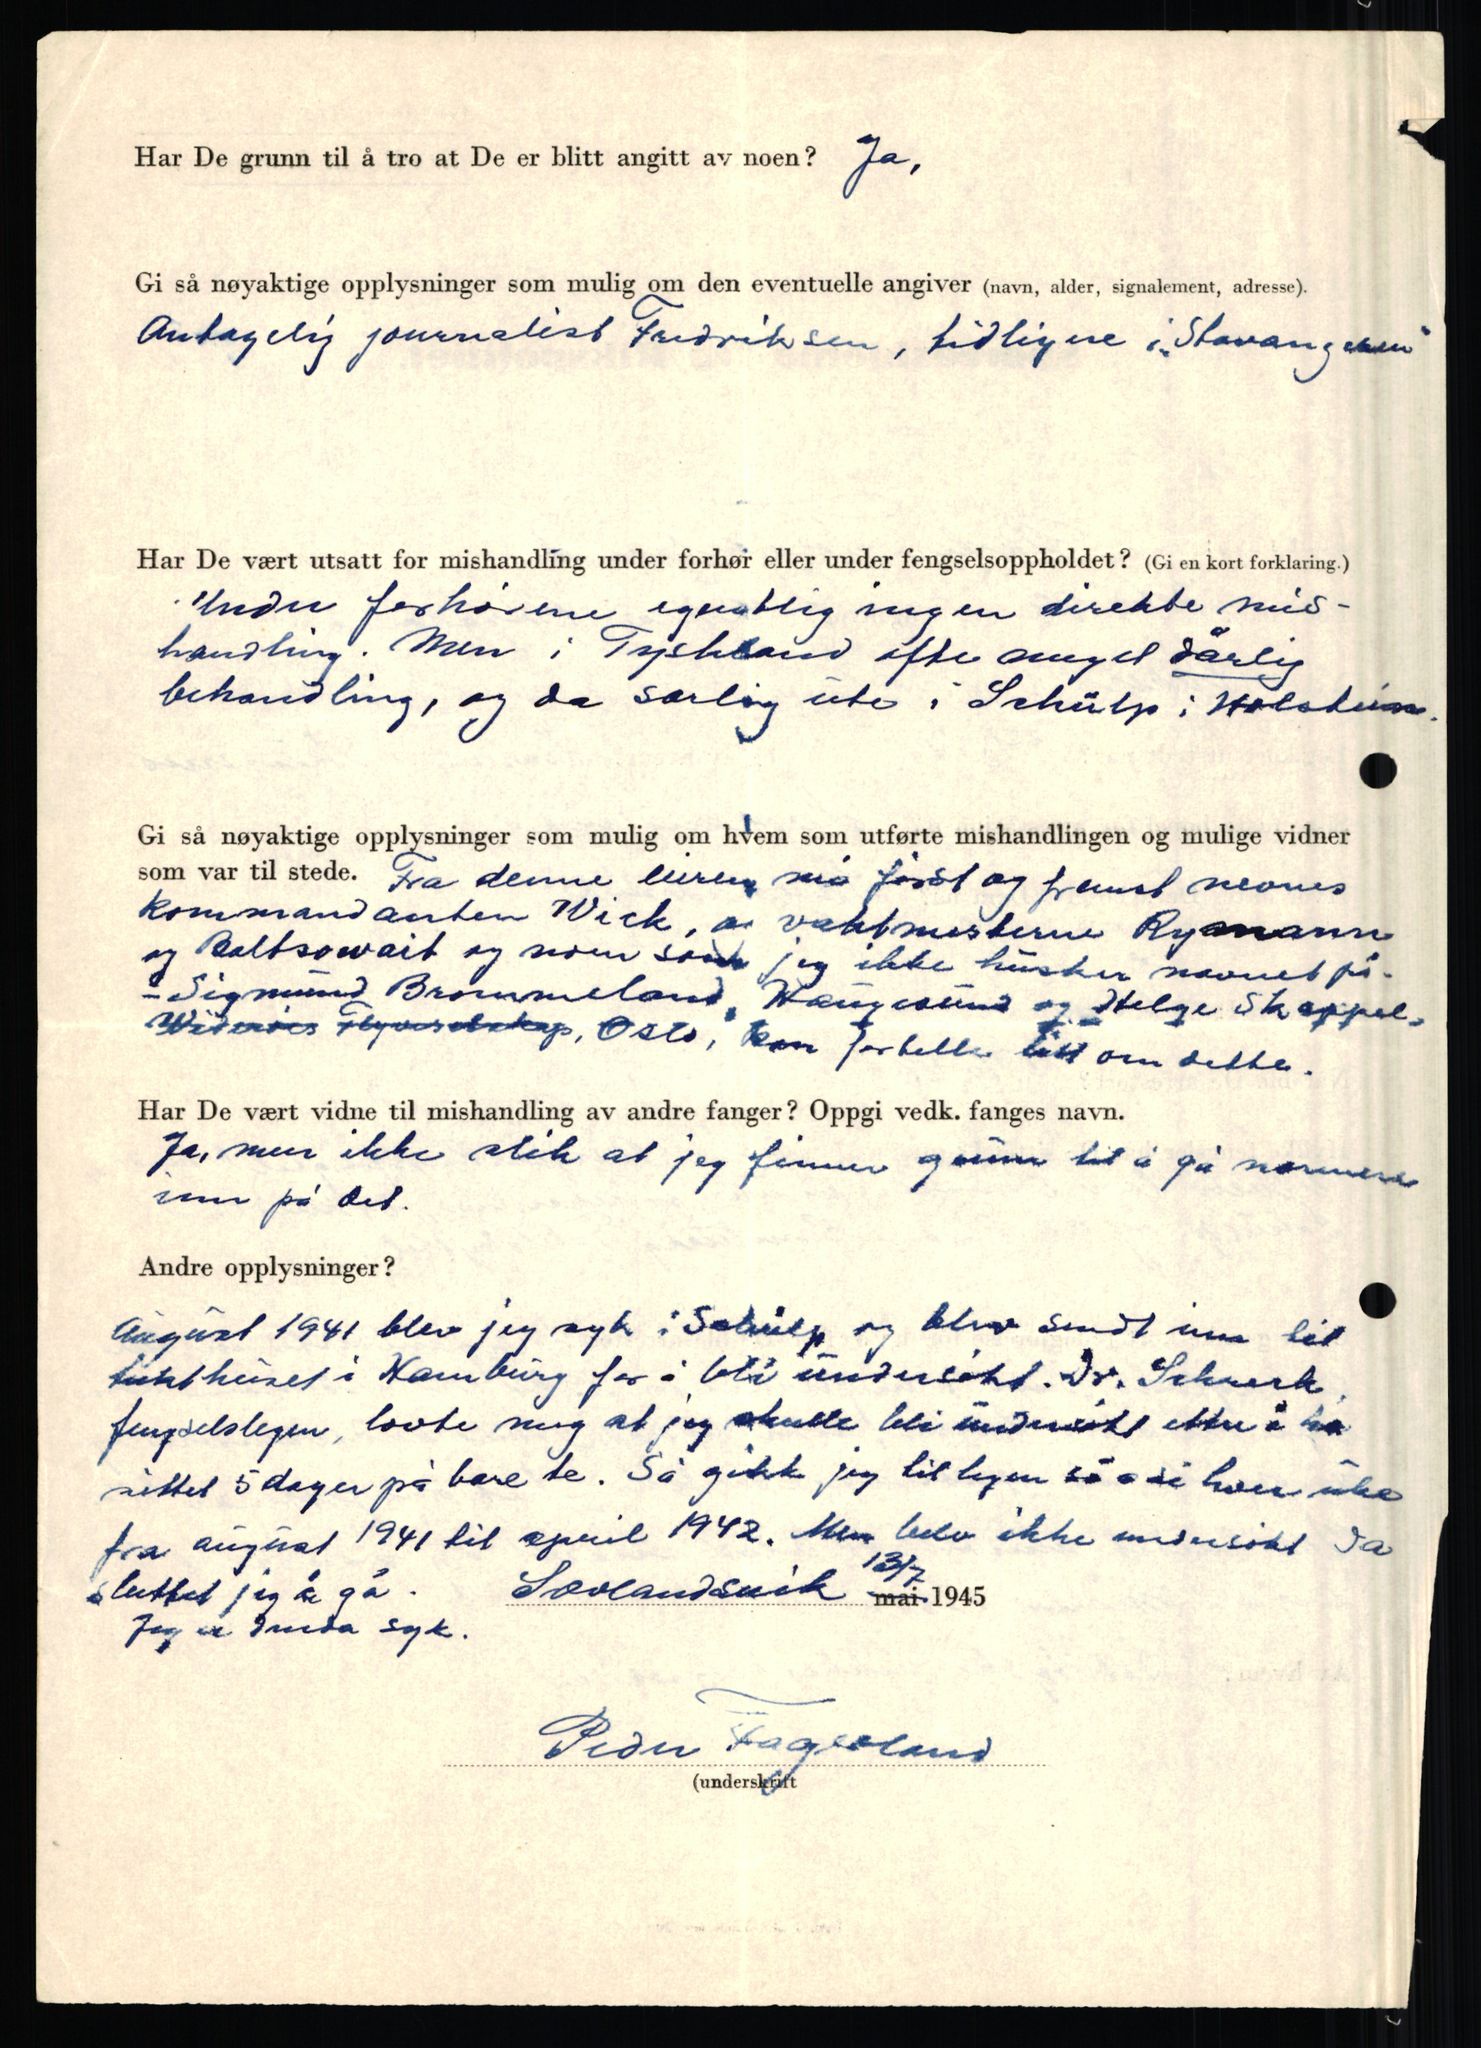 Har De grunn til å tro at De er blitt angitt av noen? Ja,
Gi så nøyaktige opplysninger som mulig om den eventuelle angiver (navn, alder, signalement, adresse).
Antagelig journalist Fredriksen, tidligere i „Stavangeren"
Har De vært utsatt for mishandling under forhør eller under fengselsoppholdet? (Gi en kort forklaring.)
Under forhørene egentlig ingen direkte mis-
handling. Men i Tyskland ofte meget dårlig
behandling, og da særlig ute i Schülp i Holstein.
Gi så nøyaktige opplysninger som mulig om hvem som utførte mishandlingen og mulige vidner
som var til stede. Fra denne leiren må først og fremst nevnes
kommandanten Wick, vaktmesterne Rymann
og Baltsowait og noen som jeg ikke husker navnet på.
- Sigmund Brommeland, Haugesund og Helge Skappel,
Widerøes Flyveselskap, Oslo, kan fortelle litt om dette.
Har De vært vidne til mishandling av andre fanger? Oppgi vedk. fanges navn.
Ja, men ikke slik at jeg finner grunn til å gå nærmere
inn på det.
Andre opplysninger?
August 1941 blev jeg syk i Schülp og blev sendt inn til
tukthuset i Hamburg for å bli undersøkt. Dr. Schrenk,
fengselslegen, lovte meg at jeg skulle bli undersøkt etter å ha
sittet 5 dager på bare te. Så gikk jeg til legen så å si hver uke
fra august 1941 til april 1942. Men blev ikke undersøkt da
sluttet jeg å gå. Sævlandsvik 13/7 mai 1945
Jeg er enda syk.
Peder Fagerland
(underskrift